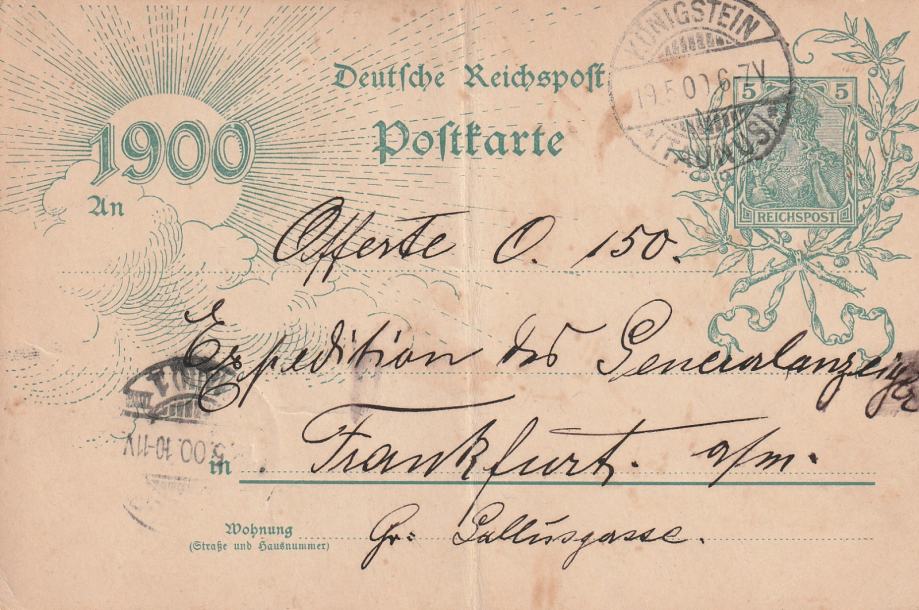 KÖNIGSTEIN
19.5.00 6-7V
(TAUNUS)
Deutsche Reichspost
Postkarte
1900
5 5
REICHSPOST
An
Offerte O. 150.
Expedition des Generalanzeiger
in Frankfurt. a/m.
5.00. 10-11V
Wohnung
(Straße und Hausnummer)
Gr: Gallusgasse.